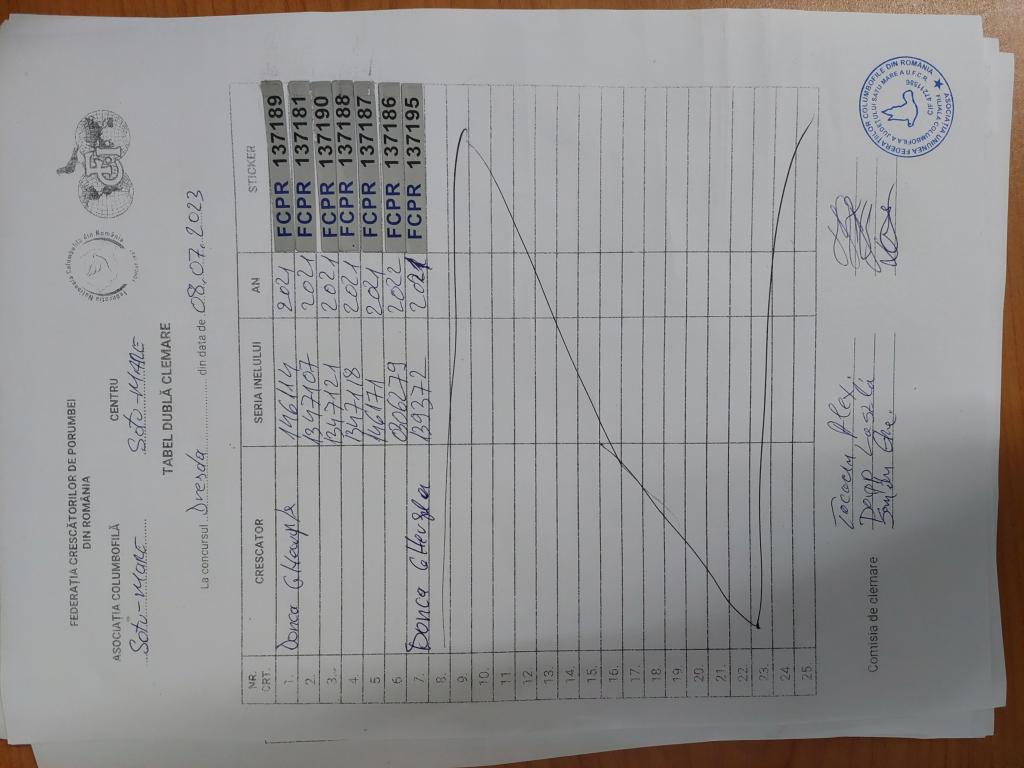 FEDERAȚIA CRESCĂTORILOR DE PORUMBEI
DIN ROMÂNIA
Federația Națională Columbofilă din România
ASOCIAȚIA COLUMBOFILĂ
CENTRU
Satu-Mare
Satu-MARE
TABEL DUBLĂ CLEMARE
La concursul Dresda din data de 08.07.2023
NR. CRT. CRESCATOR SERIA INELULUI AN STICKER
1. Donca 146114 2021 FCPR 137189
2. 1347107 2021 FCPR 137181
3. 1347121 2021 FCPR 137190
4. 1347118 2021 FCPR 137188
5 146171 2021 FCPR 137187
6 0306279 2022 FCPR 137186
7. Donca 139372 2021 FCPR 137195
8.
9.
10.
11.
12.
13.
14.
15.
16.
17.
18.
19.
20.
21.
22.
23.
24.
25.
Comisia de clemare
Papp
ASOCIAȚIA UNIUNEA FEDERAȚIILOR COLUMBOFILE DIN ROMANIA
FILIALA COLUMBOFILĂ A JUDEȚULUI SATU MARE A U.F.C.R.